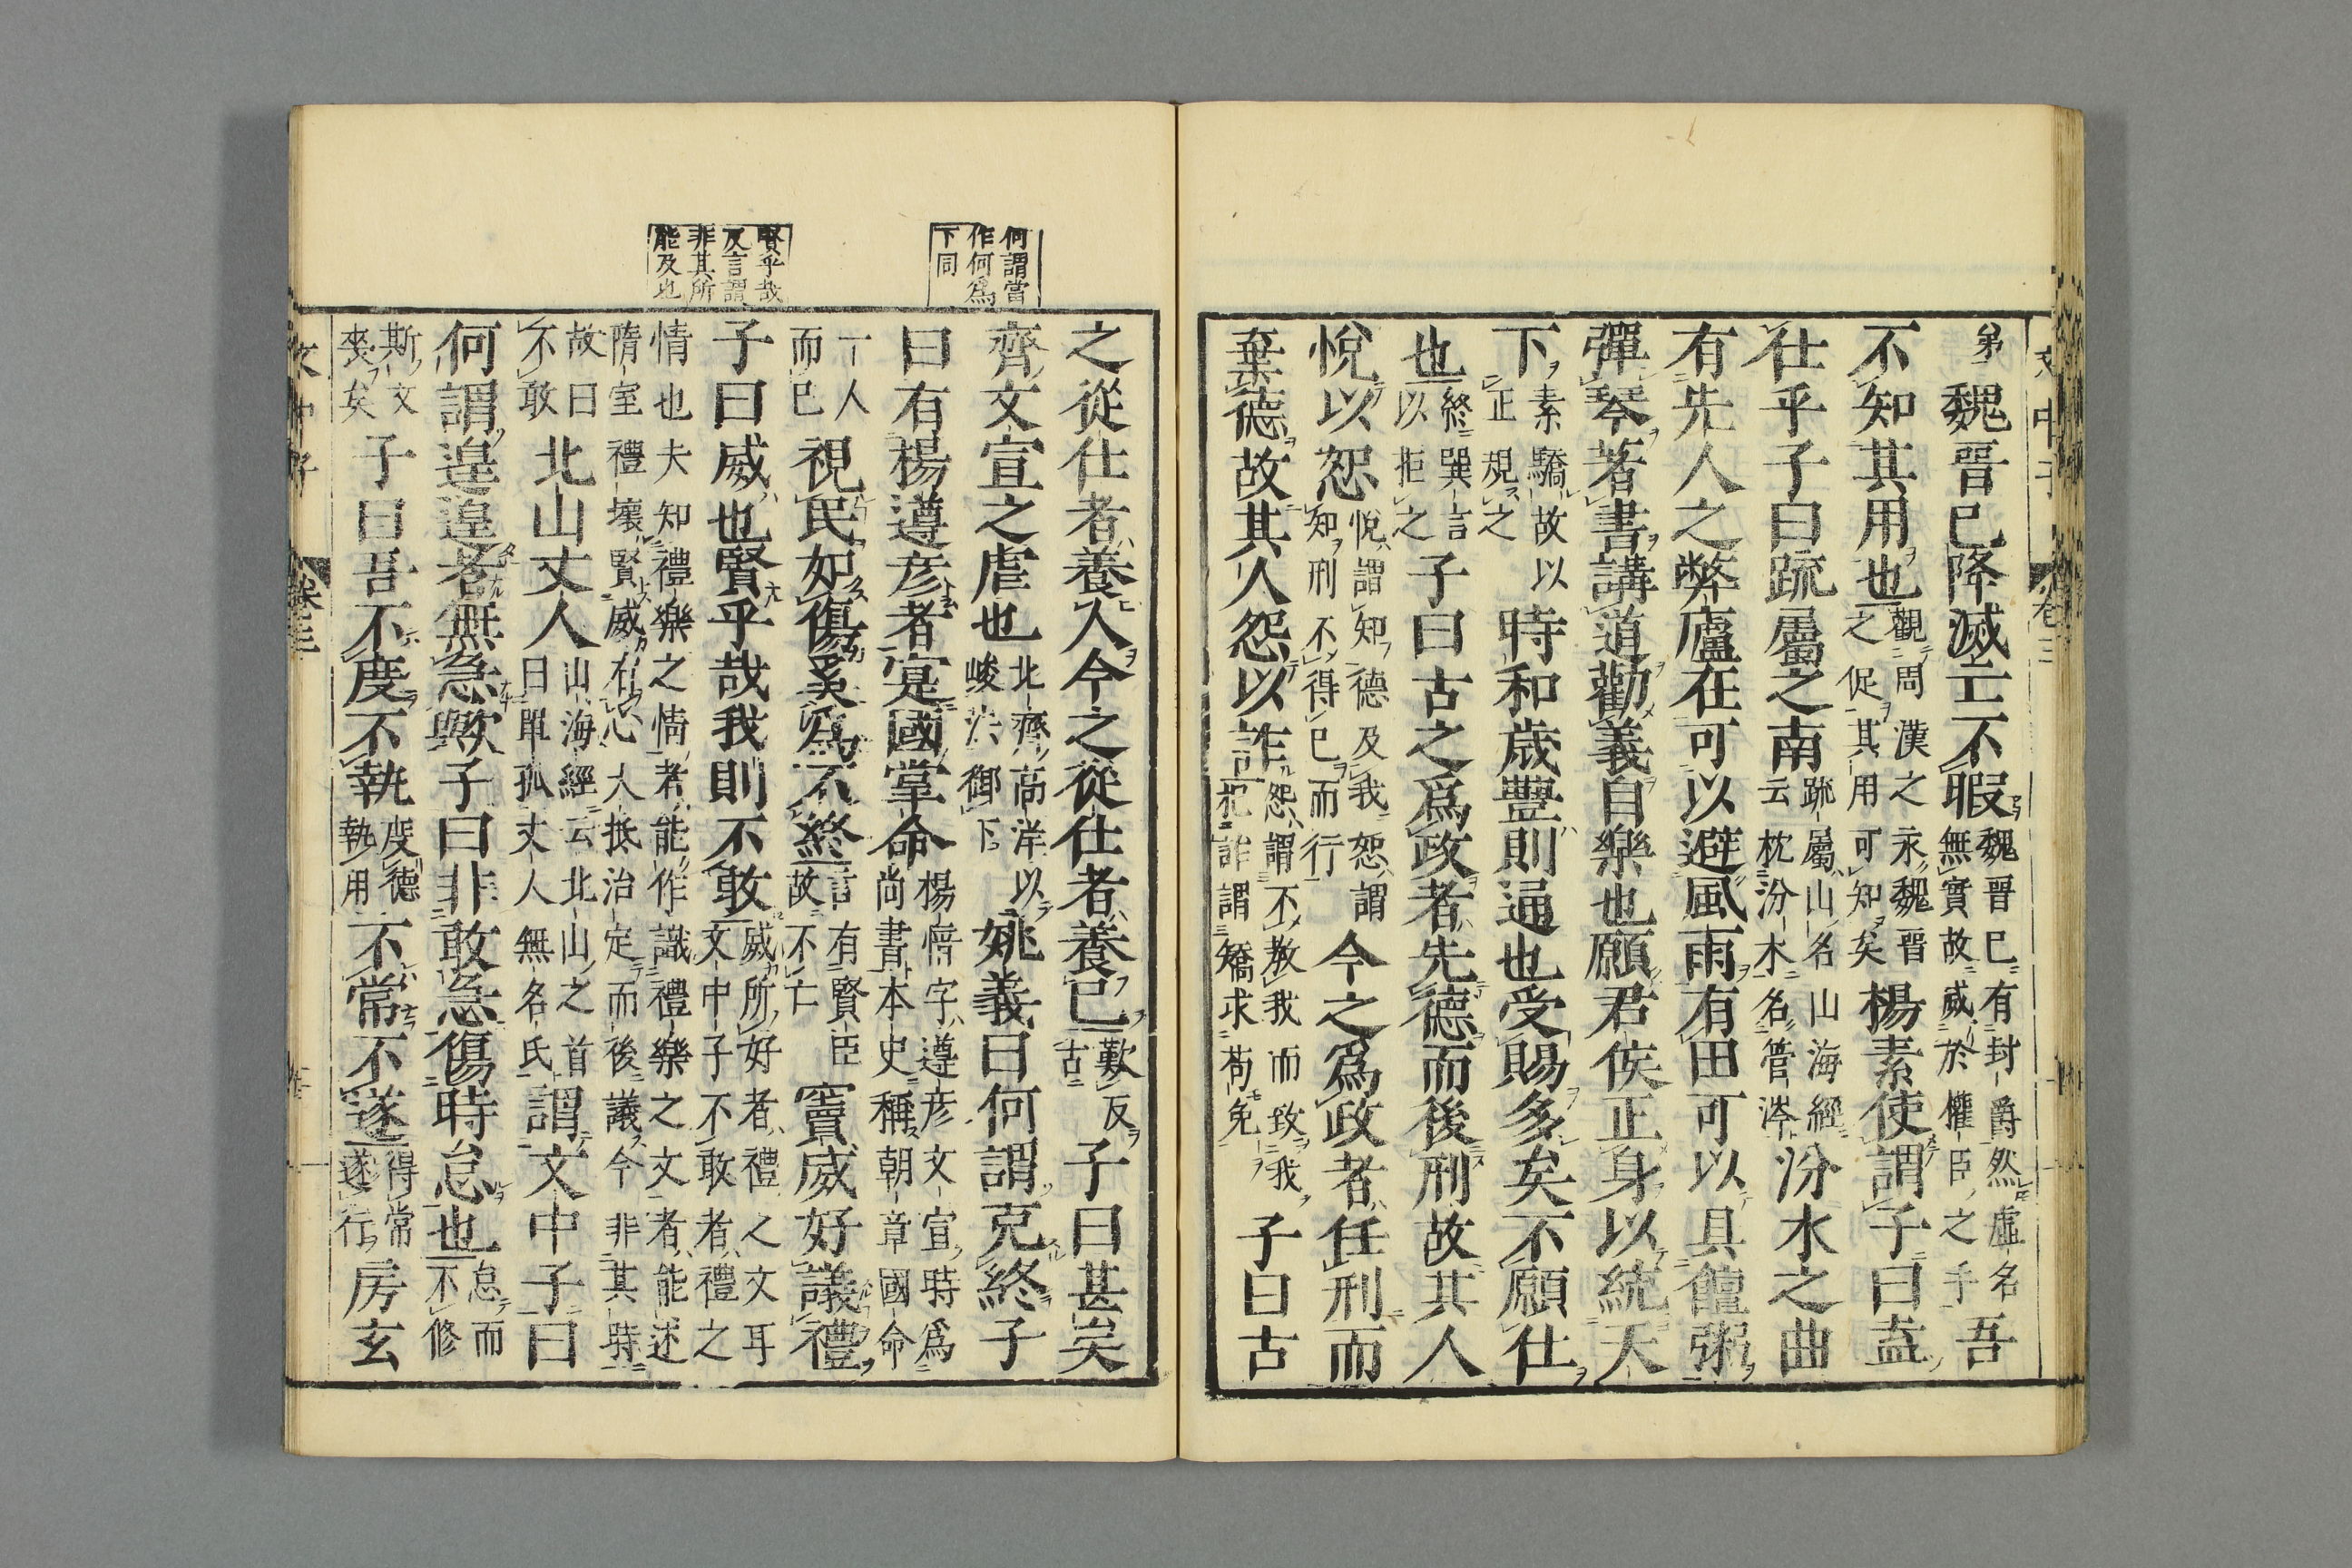 文中子 卷三
弟 魏晉已降滅亡不暇 魏晉已有封爵然虛名
無實故威於權臣之手 吾
不知其用也 觀周漢之永魏晉
之促其用可知矣 楊素使謂子曰盍
仕乎子曰疏屬之南 疏屬山名山海經
云枕汾水名管涔 汾水之曲
有先人之弊廬在可以避風雨有田可以具饘粥
彈琴著書講道勸義自樂也願君侯正身以統天
下 素驕故以
正規之 時和歲豐則通也受賜多矣不願仕
也 終巽言
以拒之 子曰古之爲政者先德而後刑故其人
悅以恕 悅謂知德及我恕謂
知刑不得已而行 今之爲政者任刑而
棄德故其人怨以詐 怨謂不教我而致我
犯詐謂矯求苟免 子曰古
何謂當
作何爲
下同
賢乎哉
反言謂
非其所
能及也
之從仕者養人今之從仕者養已 歎反
古 子曰甚矣
齊文宣之虐也 北齊高洋以
峻法御下 姚義曰何謂克終子
曰有楊遵彥者寔國掌命 楊愔字遵彥文宣時爲
尚書本史稱朝章國命
一人
而已 視民如傷奚爲不終 言有賢臣
故不亡 竇威好議禮
子曰威也賢乎哉我則不敢 威所好者禮之文耳
文中子不敢者禮之
情也夫知禮樂之情者能作識禮樂之文者能述
隋室禮壞賢威有心大抵治定而後議今非其時
故曰
不敢 北山丈人 山海經云北山之首
曰單孤丈人無名氏 謂文中子曰
何謂遑遑者無急歟子曰非敢急傷時怠也 怠而
不修
斯文
喪矣 子曰吾不度不執 度德
執用 不常不遂 得常
遂行 房玄
文中子 卷三